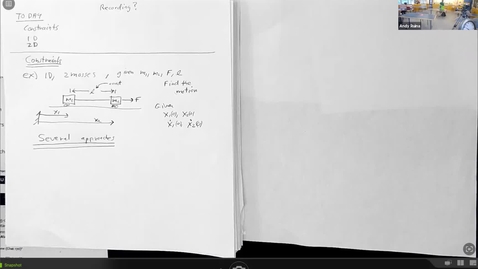 Recording?
TODAY
Constraints
1D
2D
Constraints
Ex) 1D, 2 masses, given m₁, m₂, F, l
const
Find the motion
l
m₁ m₂ F
Given
x₁ x₁(0), x₂(0)
x₂ ẋ₁(0), ẋ₂(0)
Several approaches
Snapshot